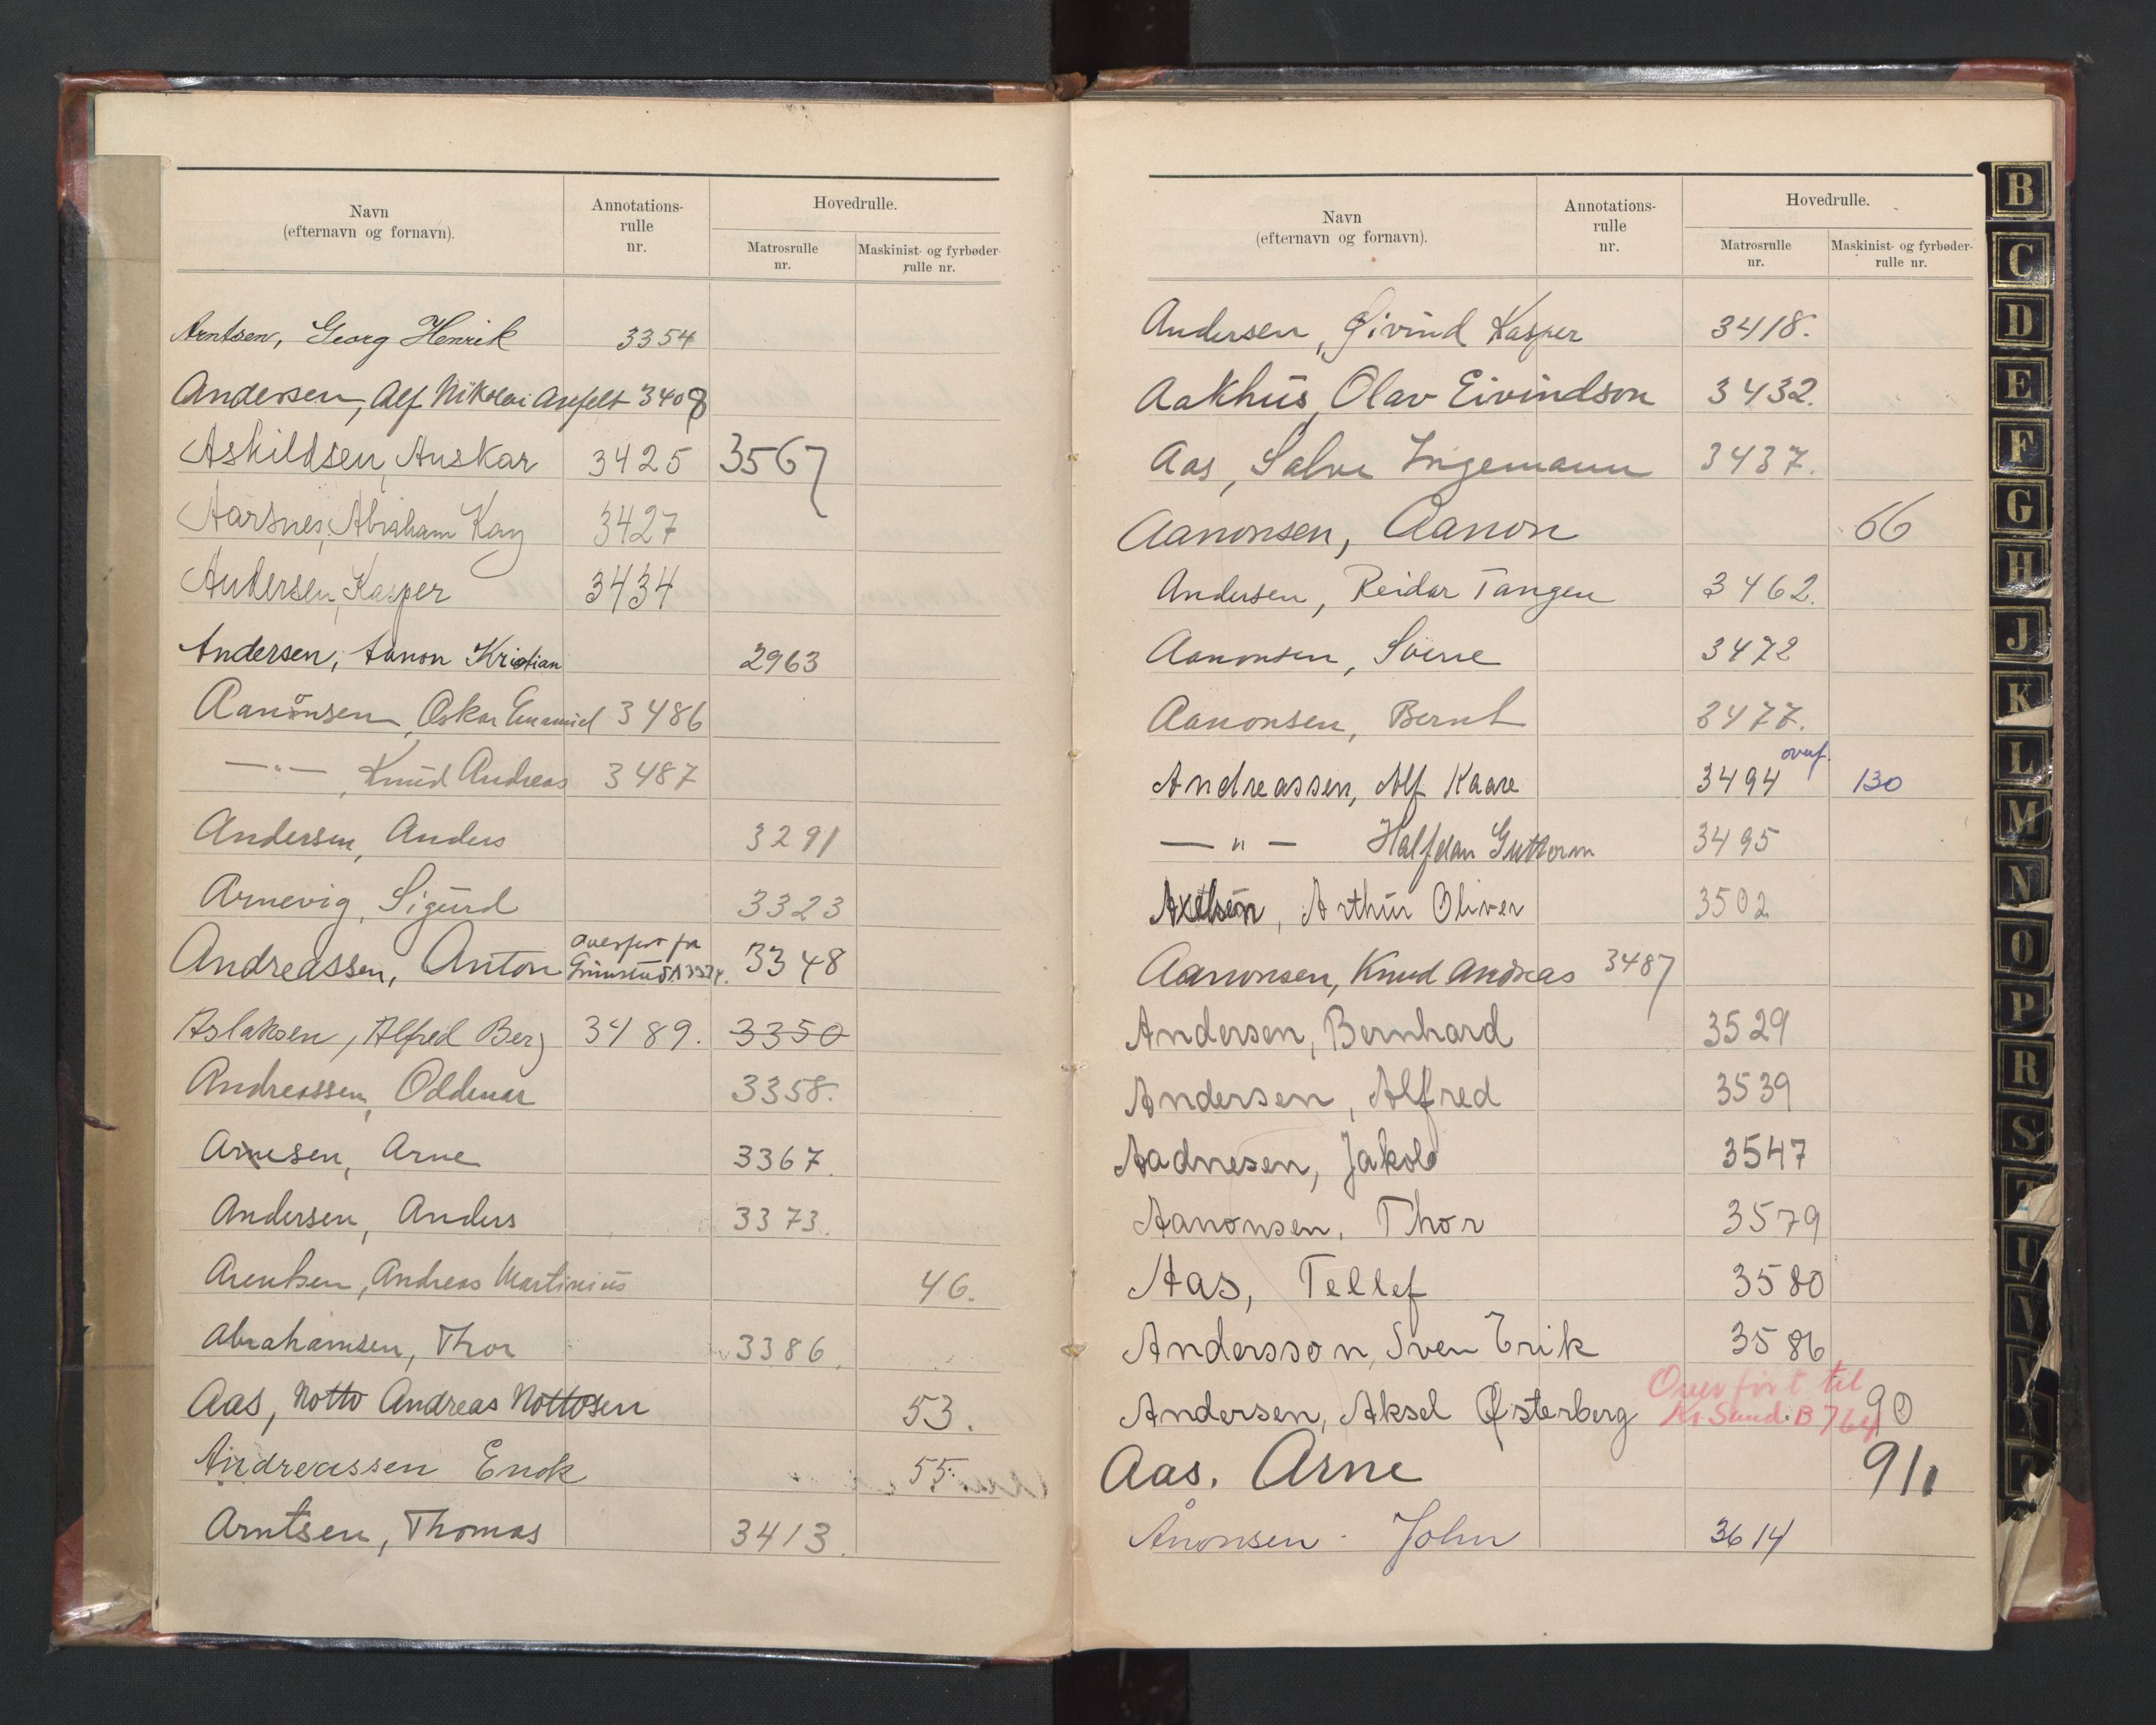 Navn
(efternavn og fornavn).
Annotations-
rulle
nr.
Hovedrulle.
Matrosrulle
nr.
Maskinist- og fyrbøder-
rulle nr.
Arntsen, Georg Henrik 3354
Andersen, Alf Nikolai Arefelt 3408
Askildsen, Anskar 3425 3567
Aarsnes, Abraham Kay 3427
Andersen, Kasper 3434
Andersen, Aanon Kristian 2963
Aanonsen, Oskar Emanuel 3486
—"— , Knud Andreas 3487
Andersen, Anders 3291
Arnevig, Sigurd 3323
Andreassen, Anton overført fra Grimstad 3348
Aslaksen, Alfred Berg 3489. 3350
Andreassen, Oddmar 3358.
Arnesen, Arne 3367.
Andersen, Anders 3373.
Arentsen, Andreas Martinius 46.
Abrahamsen, Thor 3386.
Aas, Notto Andreas Nottosen 53.
Andreassen Enok 55.
Arntsen, Thomas 3413.
Navn
(efternavn og fornavn).
Annotations-
rulle
nr.
Hovedrulle.
Matrosrulle
nr.
Maskinist- og fyrbøder-
rulle nr.
Andersen, Øivind Kasper 3418.
Aakhus, Olav Eivindson 3432.
Aas, Salve Ingemann 3437.
Aanonsen, Aanon 66
Andersen, Reidar Tangen 3462.
Aanonsen, Sverre 3472
Aanonsen, Bernt 3477.
Andreassen, Alf Kaare 3494 overf. 130
— " — Halfdan Guttorm 3495
Axelsen, Arthur Oliver 3502
Aanonsen, Knud Andreas 3487
Andersen, Bernhard 3529
Andersen, Alfred 3539
Aadnesen, Jakob 3547
Aanonsen, Thor 3579
Aas, Tellef 3580
Andersson, Sven Erik 3586
Andersen, Aksel Østerberg Overført til Kr Sand. B 764 90
Aas. Arne 91
Ånonsen John 3614
B
C
D
E
F
G
H
J
K
L
M
N
O
P
R
S
T
U
V